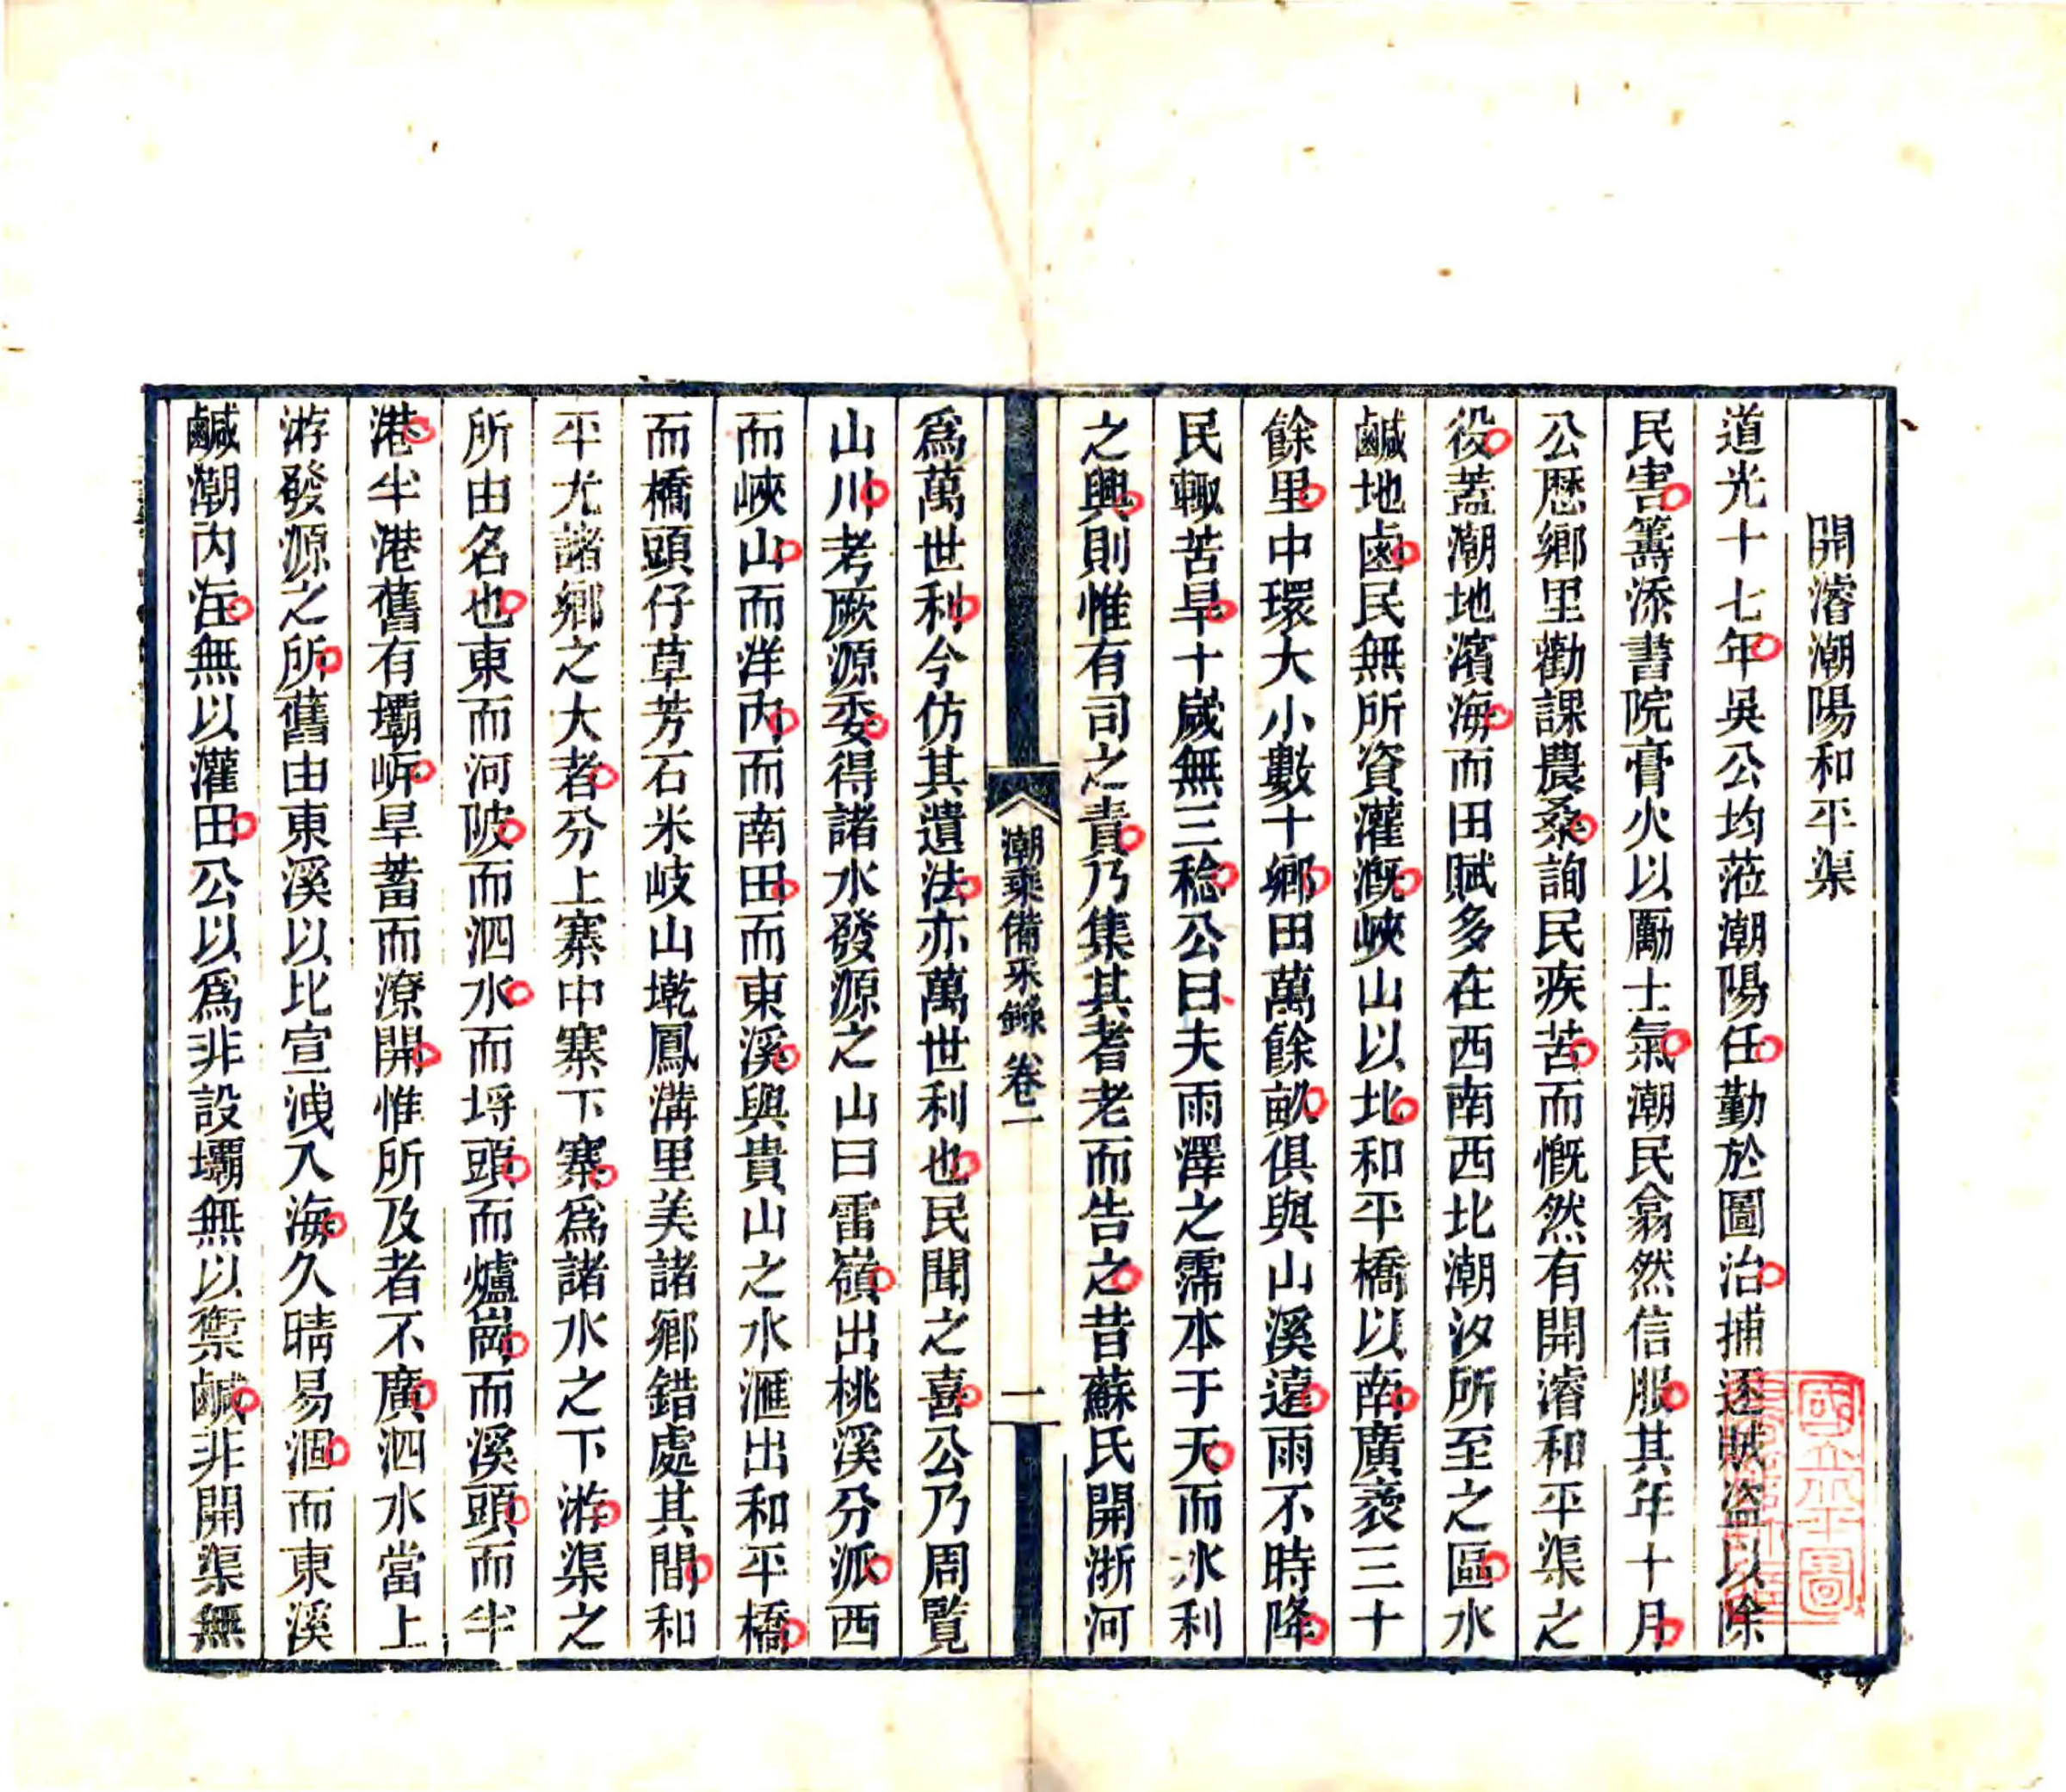 開濬潮陽和平渠
道光十七年吳公均蒞潮陽任勤於圖治捕逐賊盜以除
民害籌添書院膏火以勵士氣潮民翕然信服其年十月
公歷鄉里勸課農桑詢民疾苦而慨然有開濬和平渠之
役蓋潮地濱海而田賦多在西南西北潮汐所至之區水
鹹地鹵民無所資灌溉峽山以北和平橋以南廣袤三十
餘里中環大小數十鄉田萬餘畝俱與山溪遠雨不時降
民輙苦旱十歲無三稔公曰夫雨澤之霈本于天而水利
之興則惟有司之責乃集其耆老而告之昔蘇氏開浙河
潮乘備采錄 卷一 一
爲萬世利今仿其遺法亦萬世利也民聞之喜公乃周覽
山川考厥源委得諸水發源之山曰雷嶺出桃溪分派西
而峽山而洋內而南田而東溪與貴山之水滙出和平橋
而橋頭仔草芳石米岐山墘鳳溝里美諸鄉錯處其間和
平尤諸鄉之大者分上寨中寨下寨爲諸水之下游渠之
所由名也東而河陂而泗水而埒頭而爐崗而溪頭而半
港半港舊有壩㟁旱蓄而潦開惟所及者不廣泗水當上
游發源之所舊由東溪以比宣洩入海久晴易涸而東溪
鹹潮內注無以灌田公以爲非設壩無以禦鹹非開渠無